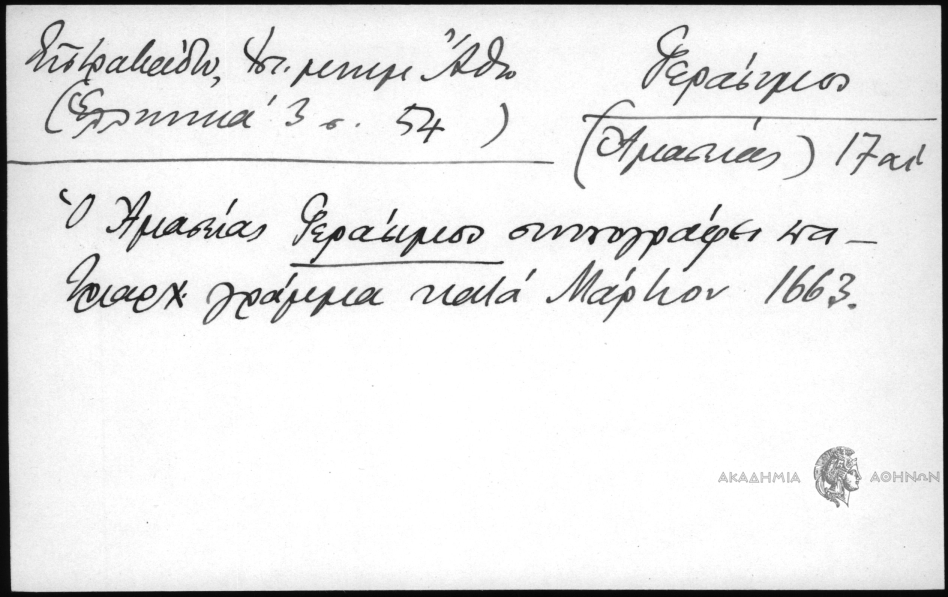 Εὐστρατιάδου, Ἱστ. μνημ. Ἄθω
(Ἑλληνικά 3 σ. 54)
Γεράσιμος
(Ἀμασείας) 17 αἰ
Ὁ Ἀμασείας Γεράσιμος συνυπογράφει πα-
τριαρχ. γράμμα κατά Μάρτιον 1663.
ΑΚΑΔΗΜΙΑ ΑΘΗΝΩΝ